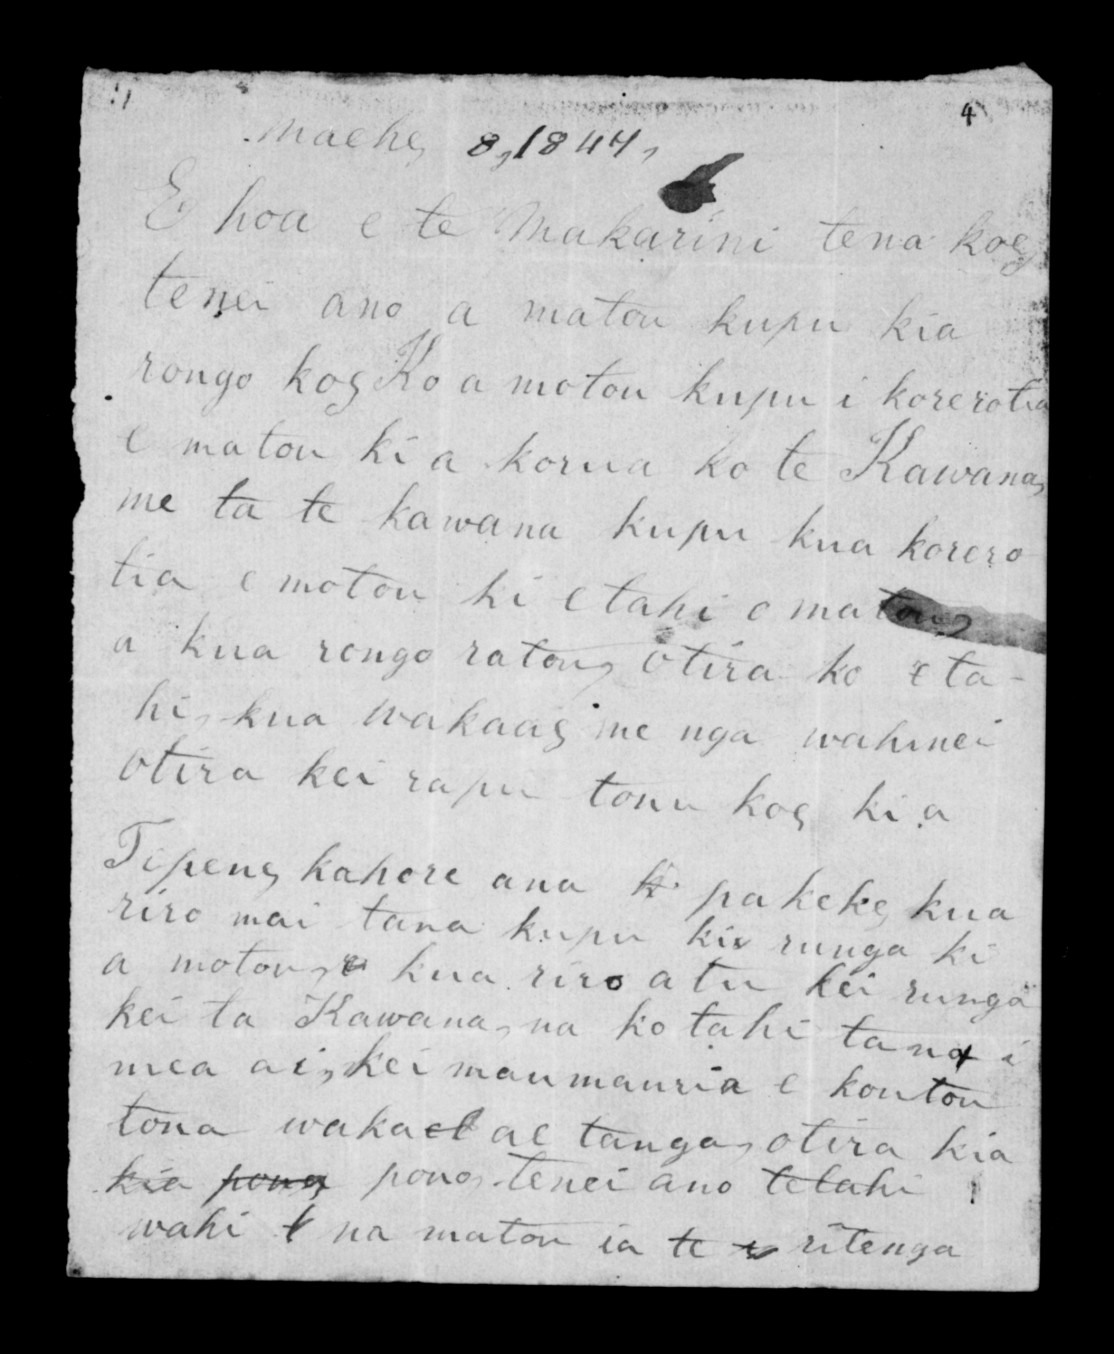 4
Maehe, 8, 1847,
E hoa e te Makarini tena koe,
tenei ano a matou kupu kia
rongo koe, Ko a motou kupu i korerotia
e matou ki a korua ko te Kawana,
me ta te kawana kupu kua korero
tia e motou ki etahi o matou,
a kua rongo ratou, otira ko eta-
hi, kua wakaae, me nga wahinei
otira kei rapu tonu koe, ki a
Tipene, kahore ana pakeke, kua
riro mai tana kupu ki runga ki
a motou, kua riro atu kei runga
kei ta Kawana, na ko tahi tana i
mea ai, kei maumauria e koutou
tona waka ae tanga, otira kia
kia pono pono, tenei ano tetahi
wahi na matou ia te ritenga